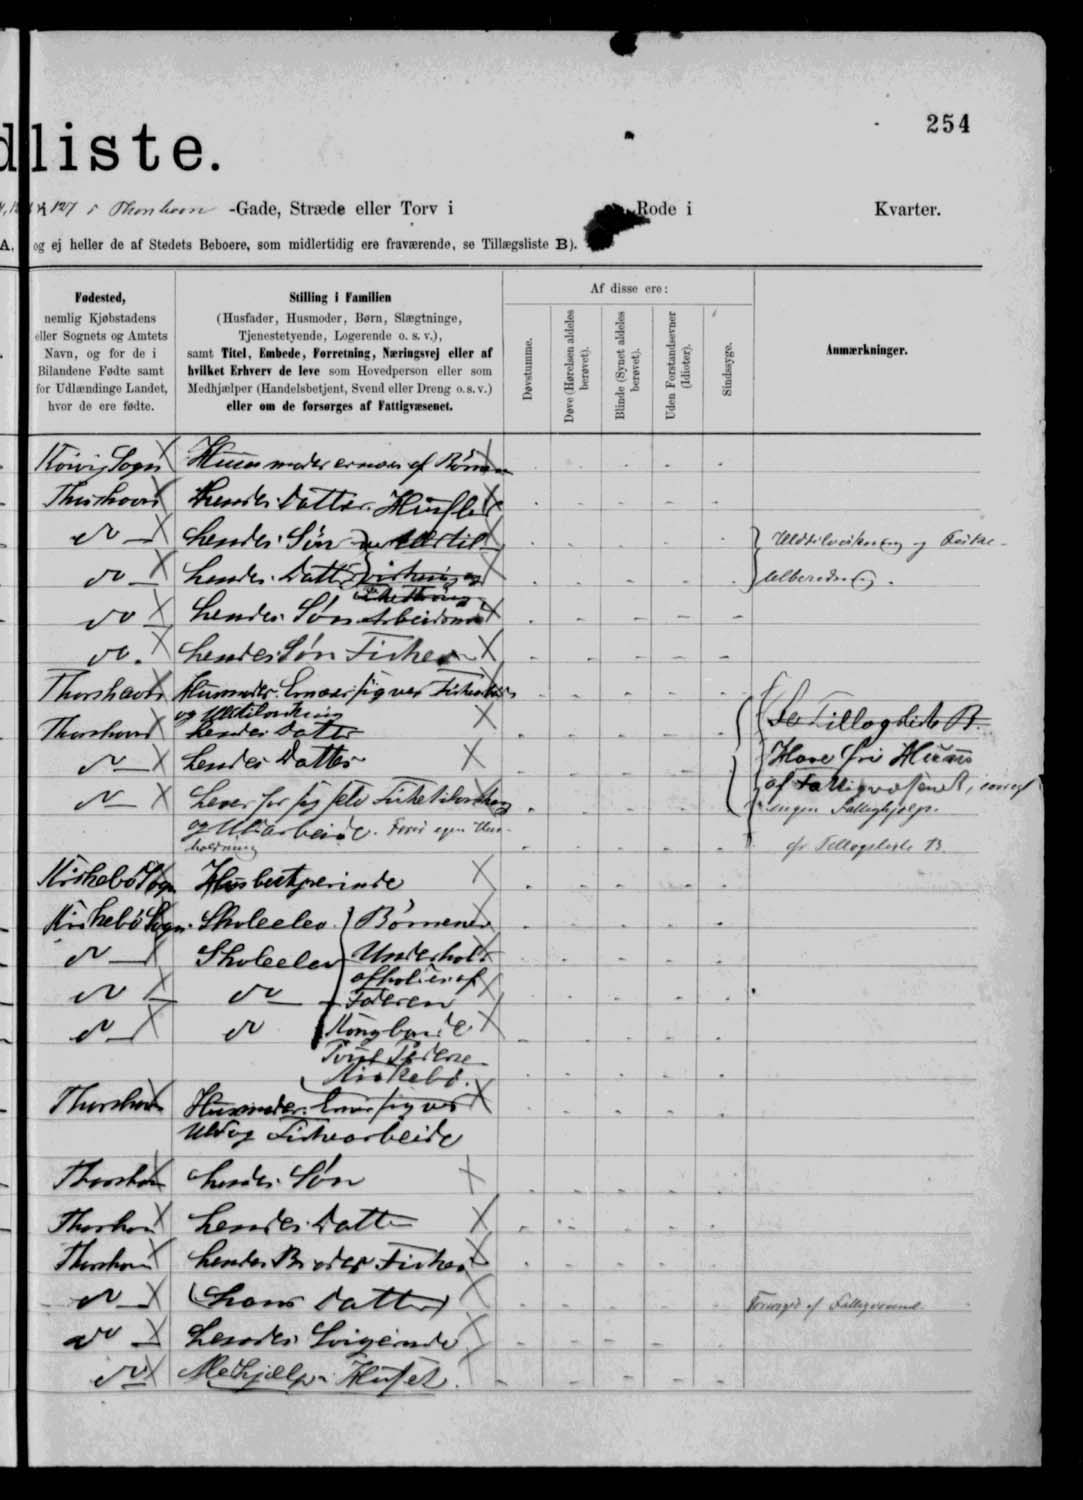 254
dliste.
127 i Thorshavn -Gade, Stræde eller Torv i Rode i Kvarter.
A. og ej heller de af Stedets Beboere, som midlertidig ere fraværende, se Tillægsliste B).
Fødested,
nemlig Kjøbstadens
eller Sognets og Amtets
Navn, og for de i
Bilandene Fødte samt
for Udlændinge Landet,
hvor de ere fødte.
Stilling i Familien
(Husfader, Husmoder, Børn, Slægtninge,
Tjenestetyende, Logerende o. s. v.),
samt Titel, Embede, Forretning, Næringsvej eller af
hvilket Erhverv de leve som Hovedperson eller som
Medhjælper (Handelsbetjent, Svend eller Dreng o.s.v.)
eller om de forsørges af Fattigvæsenet.
Af disse ere:
Døvstumme.
Døve (Hørelsen aldeles berøvet).
Blinde (Synet aldeles berøvet).
Uden Forstandsevner (Idioter).
Sindssyge.
Anmærkninger.
Sogn Husmoder ernæres af Børnene
Thorshavn Hendes Datter.
do hendes Søn Uldtil- Uldtilvirkning og Fiske-
do hendes Datter virkning og tilberedning.
do hendes Søn Arbeidsmand
do. hendes Søn Fisker
Thorshavn Husmoder. Ernærer sig ved
og Uldtilvirkning
Thorshavn hendes Datter Se Tillægsliste B.
do hendes Datter Have fri Huus
do Lever for sig selv Fisketilvirkning af Fattigvæsenet,
og Uldarbeide. ingen Fattighjælp.
holdning cfr Tillægsliste B.
Kirkebø Sogn Husbestyrerinde
Kirkebø Sogn. Skoleelev. Børnenes
do Skoleelev Underhold
do do afholdes af
Faderen
do do Kongbonde
Kirkebø.
Thorshavn Husmoder. Ernærer sig ved
Uld og Fiskearbeide
Thorshavn hendes Søn
Thorshavn hendes Datter
Thorshavn hendes Broder Fisker
do (hans Datter) Forsørges af Fattigvæsenet
do hendes Svigerinde
do Medhjælp i Huset.